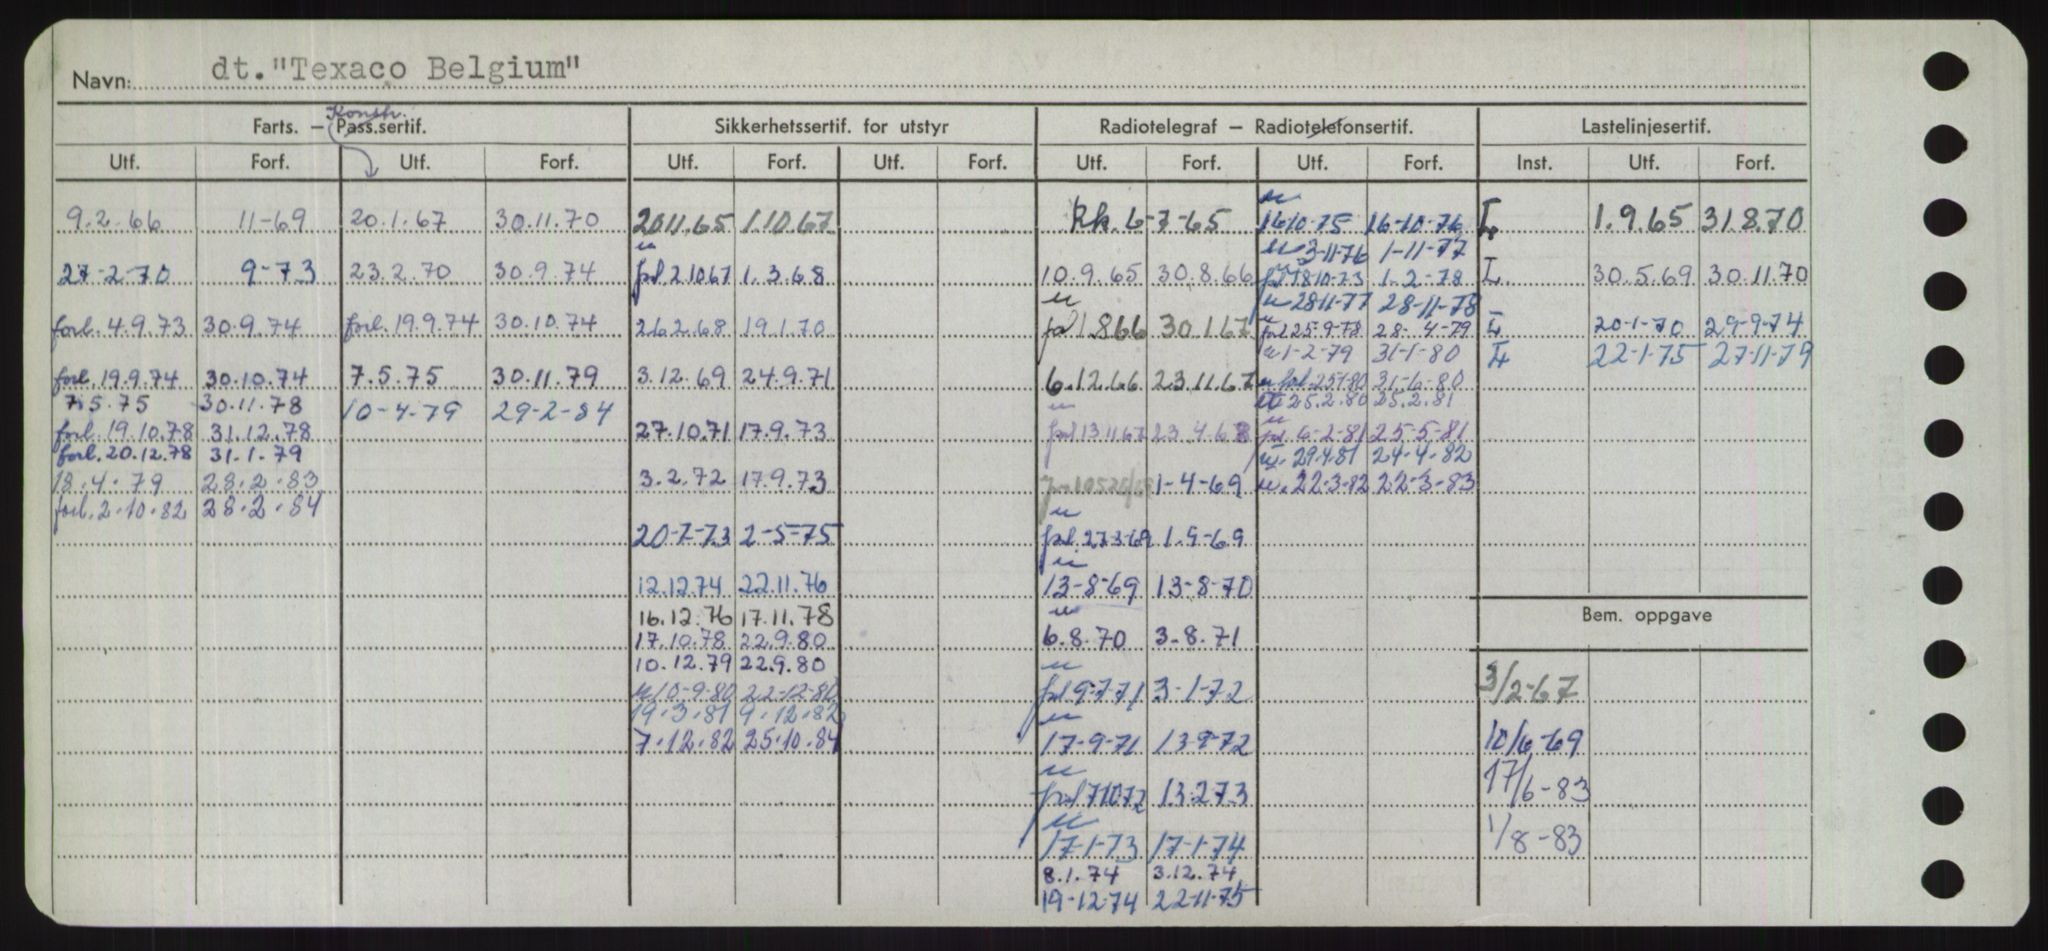 Navn: dt. "Texaco Belgium"
Konstr.
Farts. — Pass.sertif. Sikkerhetssertif. for utstyr Radiotelegraf — Radiotelefonsertif. Lastelinjesertif.
Utf. Forf. Utf. Forf. Utf. Forf. Utf. Forf. Utf. Forf. Utf. Forf. Inst. Utf. Forf.
9.2.66 11-69
27-2-70 9-73
forl. 4.9.73 30.9.74
forl. 19.9.74 30.10.74
7.5.75 30.11.78
forl. 19.10.78 31.12.78
forl. 20.12.78 31.1.79
18.4.79 28.2.83
forl. 2.10.82 28.2.84
20.1.67 30.11.70
23.2.70 30.9.74
forl. 19.9.74 30.10.74
7.5.75 30.11.79
10-4-79 29-2-84
20.11.65 1.10.67
u
forl 2.10.67 1.3.68
26.2.68 19.1.70
3.12.69 24.9.71
27.10.71 17.9.73
3.2.72 17.9.73
20-7-73 2-5-75
12.12.74 22.11.76
16.12.76 17.11.78
17.10.78 22.9.80
10.12.79 22.9.80
u 10-9-80 22-12-80
19.3.81 9.12.82
7.12.82 25.10.84
Rk. 6-7-65
10.9.65 30.8.66
u
forl 1.8.66 30.1.67
6.12.66 23.11.67
u
forl 13.11.67 23.4.68
1-4-69
u
forl. 27.3.69 1.9-69
u
13-8-69 13-8-70
u
6.8.70 3.8.71
u
forl 9-7-71 3-1-72
u
17-9-71 13-9-72
u
forl 7.10.72 13.2.73
u
17-1-73 17-1-74
8.1.74 3.12.74
19-12-74 22-11-75
u
16-10-75 16-10-76
u 3-11-76 1-11-77
forl 18-10-73 1-2-78
u 28-11-77 28-11-78
forl 25-9-78 28-4-79
u 1-2-79 31-1-80
u forl. 25-1-80 31-6-80
25.2.80 25.2.81
u
forl. 6-2-81 25-5-81
u. 29.4.81 24-4-82
u. 22-3-82 22-3-83
L 1.9.65 31.8.70
L 30.5.69 30.11.70
L 20-1-70 29-9-74
L 22-1-75 27-11-79
Bem. oppgave
3/2-67
10/6-69
17/6-83
1/8-83